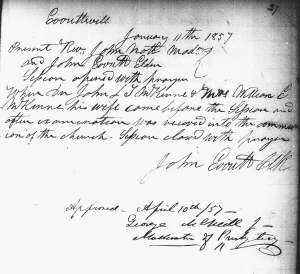 21
Evonttvill
January 11th 1857
Present Rev. John Nott Mod.
and John Evontt Elder
Session opened with prayer
When Dr John L. T. McKinne & Mrs William E.
McKinne his wife came before the Session and
after examination was received into the commun
ion of the church. Session closed with prayer
John Evontt Clk
Approved - April 10th /57 -
George McNeill Jr
Moderator of Presbytery